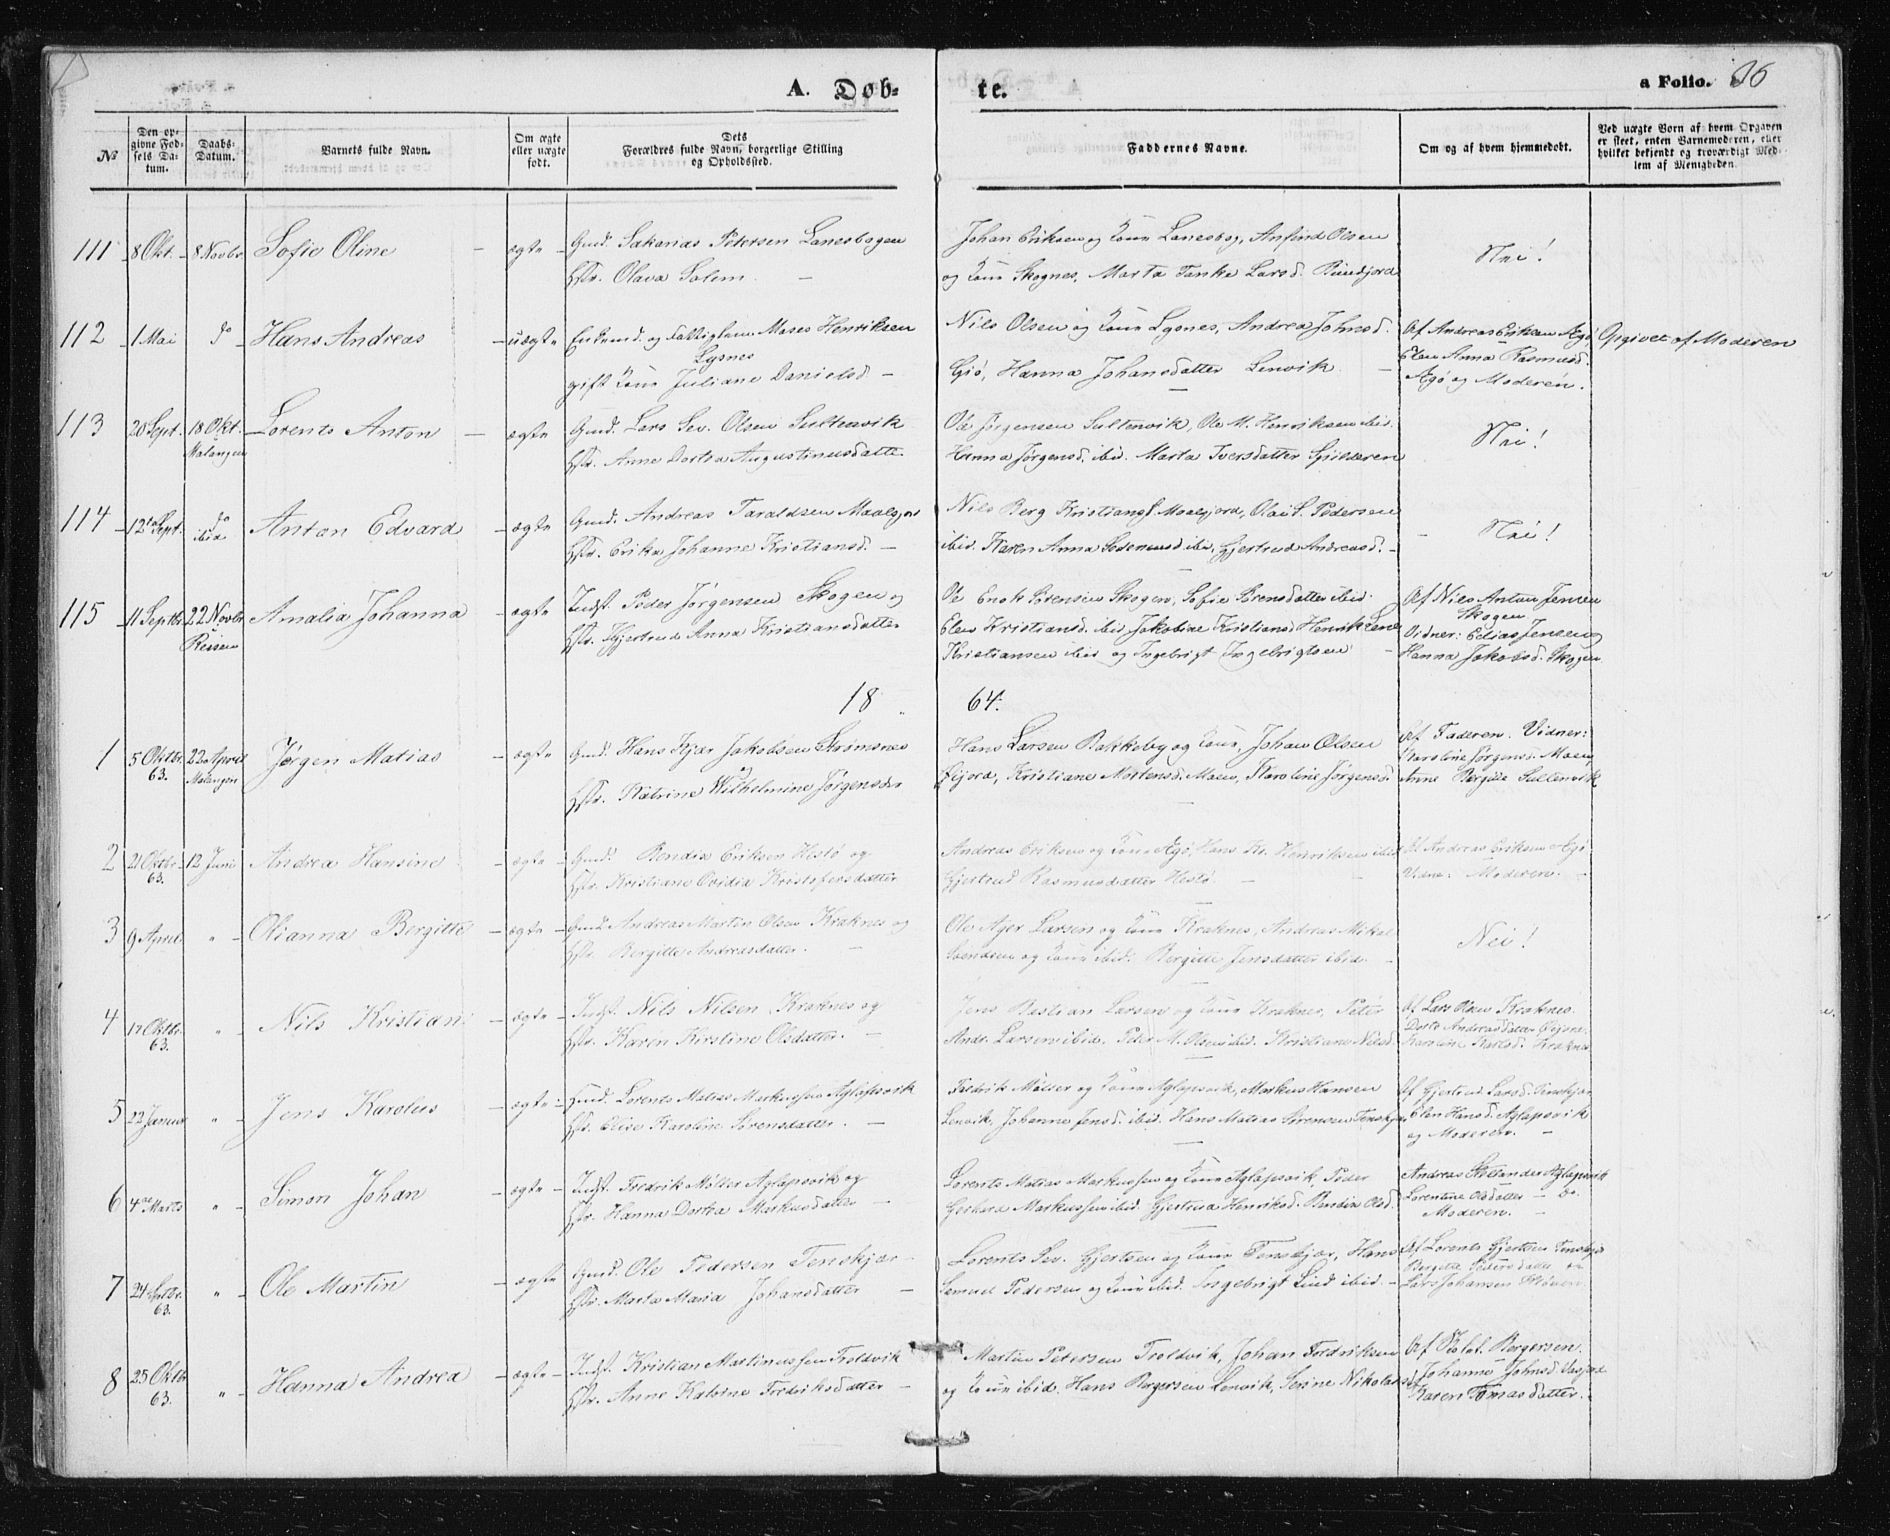 A. Døb-
te.
a Folio. 36
№
Den op-
givne Fød-
sels Da-
tum.
Daabs-
Datum.
Barnets fulde Navn.
Om ægte
eller uægte
født.
Dets
Forældres fulde Navn, borgerlige Stilling
og Opholdssted.
Faddernes Navne.
Om og af hvem hjemmedøbt.
Ved uægte Børn af hvem Opgaven
er skeet, enten Barnemoderen, eller
hvilket bekjendt og troværdigt Med-
lem af Menigheden.
111 8 Okt. 8 Novbr Sofie Oline - ægte - Gmd. Sakarias Petersen Lanesbogen
Hstr. Olava Salem. -
Johan Eriksen og Kone Lanesbog, Anfind Olsen
og Kone Skognes, Marta Tanke Larsd.
Nei!
112 1 Mai do Hans Andreas - uægte - Enkemd. og Fattiglem Moses Henriksen
Lysnes
gift Kone Juliane Danielsd -
Nils Olsen og Kone Lysnes, Andrea Johnsd.
Giö, Hanna Johansdatter Lenvik. -
Af Andreas Eriksen Ægö,
Elen Anna Rasmusd.
Ægö og Moderen.
Opgivet af Moderen
113 20 Sept. 18 Okt.
Malangen
Lorents Anton - ægte - Gmd. Lars Sev. Olsen Sultenvik
Hstr. Anne Dortea Augustinusdatte.
Ole Jørgensen Sultenvik, Ole M. Henriksen ibid.
Hanna Jørgensd. ibid. Marta Iversdatter Spilderen
Nei!
114 12te Sept. do
ibid
Anton Edvard - ægte - Gmd. Andreas Taraldsen Maalsjor
Hstr. Erika Johanne Kristiansd. -
Nils Berg Kristians. Maalsjord, Olai S. Pedersen
ibid. Karen Anna ibid, Gjertrud Andreasd. -
- Nei!
115 11 Septbr 22 Novbr
Reisen
Amalia Johanna - ægte - Indst. Peder Jørgensen Skogen og
Hstr. Gjertrud Anna Kristiansdatter
Ole Enok Sørensen Skogen, Sofie Sørensdatter ibid.
Elen Kristiansd. ibid Jakobine Kristiansd. Henrik Lene
Kristiansen ibid og Ingebrigt Ingebrigtsen -
Af Nils Anton Jensen
Skogen
Vidner: Edias Jensen og
Hanna Jakobsd. Skogen
18 64.
1 5 Oktbr.
63.
22 April
Malangen
Jørgen Matias - ægte - Gmd. Hans Kjær Jakobsen Strømsnes
og
Hstr. Katrine Wilhelmine Jørgensdr
Hans Larsen Bakkeby og Kone, Johan Olsen
Øijord, Kristiane Mortensd. Moen, Karoline Jørgensd.
Af Faderen. Vidner:
Karoline Jørgensd. Moen
Anne Bergitte Sultenvik
2 21 Oktbr.
63.
12 Juni Andrea Hansine - ægte - Gmd. Bendix Eriksen Hestö og
Hstr. Kristiane Ovidia Kristofersdatter
Andreas Eriksen og Kone Ægö, Hans Kr. Henriksen ibid
Gjertrud Rasmusdatter Hestö. -
Af Andreas Eriksen Ægö
Vidne: Moderen. -
3 9 April " - Olianna Bergitte - ægte - Gmd. Andreas Martin Olsen Kraknes og
Hstr. Bergitte Andreasdatter. -
Ole Ager Larsen og Kone Kraknes, Andreas Mikal
Svendsen og Kone ibid. Bergitte Jensdatter ibid. -
Nei!
4 17 Oktbr.
63.
" - Nils Kristian - ægte - Indst. Nils Nilsen Kraknes og
Hstr. Karen Kirstine Olsdatter. -
Jens Bastian Larsen og Kone Kraknes, Peter
Andr. Larsen ibid. Peter M. Olsen ibid. Kristiane Nilsd.
Af Lars Olsen Kraknes.
Dorte Andreasdatter Öijord.
Karoline Karlsd. Kraknes
5 22 Januar " - Jens Karolus - ægte - Gmd. Lorents Matias Markussen Aglapsvik
Hstr. Elise Karoline Sörensdatter. -
Fredrik Möller og Kone Aglapsvik, Markus Hansen
Lenvik, Johanne Jensd. ibid. Hans Matias Sörensen Tenskjær
Af Gjertrud Larsd. Tenskjær
Elen Hansd. Aglapsvik
og Moderen. -
6 4de Marts " - Simon Johan - ægte - Indst. Fredrik Möller Aglapsvik og
Hstr. Hanna Dorthea Markusdatter -
Lorents Matias Markussen og Kone Aglapsvik, Peder
Gerhard Markussen ibid. Gjertrud Henriksd. Berdin Olsd.
Andreas Aglapsvik
Lorentine Olsdatter - do.
Moderen. -
7 24 Septbr.
63.
" - Ole Martin - ægte - Gmd. Ole Pedersen Tenskjær -
Hstr. Marta Maria Johansdatter -
Lorents Sev. Gjertsen og Kone Tenskjær, Hans
Semuel Pedersen og Kone ibid. Ingebrigt Lind ibid. -
Af Lorents Gjertsen Tenskjær
Bergitte Pedersdatter do
Lars Johansen Kløven.
8 25 Oktbr
63.
" - Hanna Andrea - ægte - Indst. Kristian Martinussen Troldvik
Hstr. Anne Katrine Fredriksdatter -
Martin Petersen Troldvik, Johan Fredriksen
og Kone ibid. Hans Bergersen Lenvik, Serine Nikolaisd.
Af Bergersen.
Johanna Johnsd.
Karen Tomasdatter.